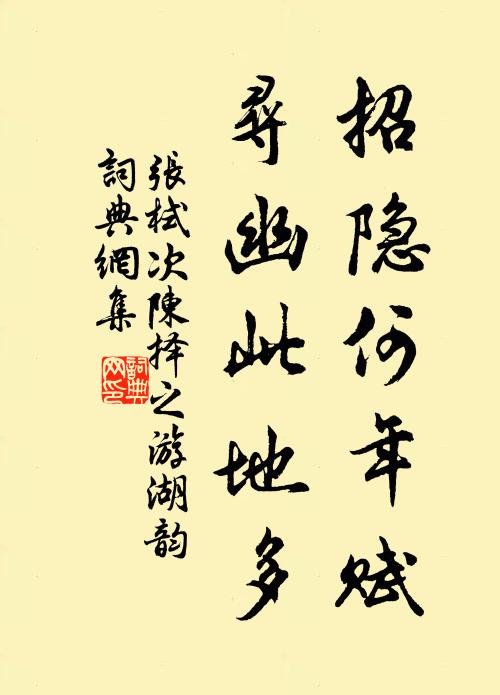 招隐何年赋
尋幽此地多
張栻次陳择之游湖韵
詞典網集
詞典網印